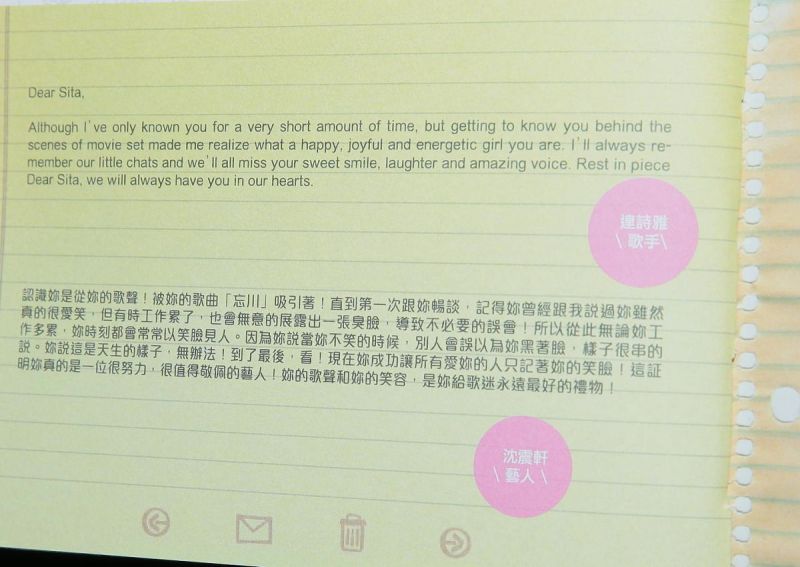 Dear Sita,
Although I've only known you for a very short amount of time, but getting to know you behind the
scenes of movie set made me realize what a happy, joyful and energetic girl you are. I'll always re-
member our little chats and we'll all miss your sweet smile, laughter and amazing voice. Rest in piece
Dear Sita, we will always have you in our hearts.
連詩雅
\ 歌手 \
認識妳是從妳的歌聲！被妳的歌曲「忘川」吸引著！直到第一次跟妳暢談，記得妳曾經跟我説過妳雖然
真的很愛笑，但有時工作累了，也會無意的展露出一張臭臉，導致不必要的誤會！所以從此無論妳工
作多累，妳時刻都會常常以笑臉見人。因為妳説當妳不笑的時候，別人會誤以為妳黑著臉，樣子很串的
説。妳説這是天生的樣子，無辦法！到了最後，看！現在妳成功讓所有愛妳的人只記著妳的笑臉！這証
明妳真的是一位很努力，很值得敬佩的藝人！妳的歌聲和妳的笑容，是妳給歌迷永遠最好的禮物！
沈震軒
\ 藝人 \